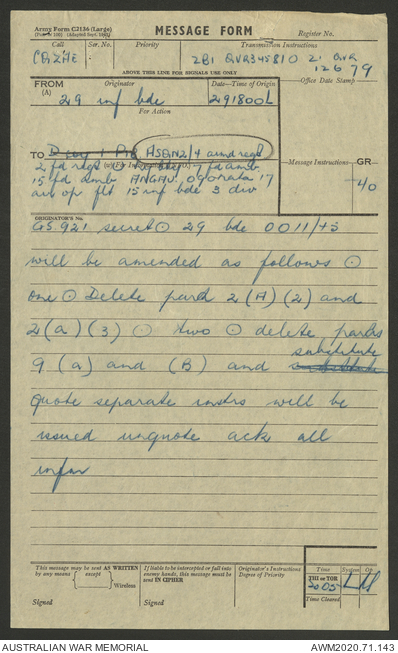 Army Form C2136 (Large)
MESSAGE FORM
Register No.
Call
Ser. No.
Priority
Transmission Instructions
2B1 QVR345810 21 QVR
12 6 79
ABOVE THIS LINE FOR SIGNALS USE ONLY
Office Date Stamp
FROM
(A)
Originator
29 inf bde
Date—Time of Origin
291800L
For Action
TO
ASQN2/4 armd regt
(W) For Information
2 fd regt
7 fd amb
15 fd amb ANGAU
17
air op flt 15 inf bde 3 div
Message Instructions
GR
40
ORIGINATOR'S No.
GS 921 secret ⊙ 29 bde 0011/+3
will be amended as follows ⊙
one ⊙ Delete para 2(A)(2) and
2(a)(3) ⊙ two ⊙ delete paras
substitute
9(a) and (B) and
quote separate instrs will be
issued unquote ack all
infm
This message may be sent AS WRITTEN
by any means { except } Wireless
Signed
If liable to be intercepted or fall into
enemy hands, this message must be
sent IN CIPHER
Signed
Originator's Instructions
Degree of Priority
Time
System
Op.
THI or TOR
2005
Time Cleared
AUSTRALIAN WAR MEMORIAL
AWM2020.71.143